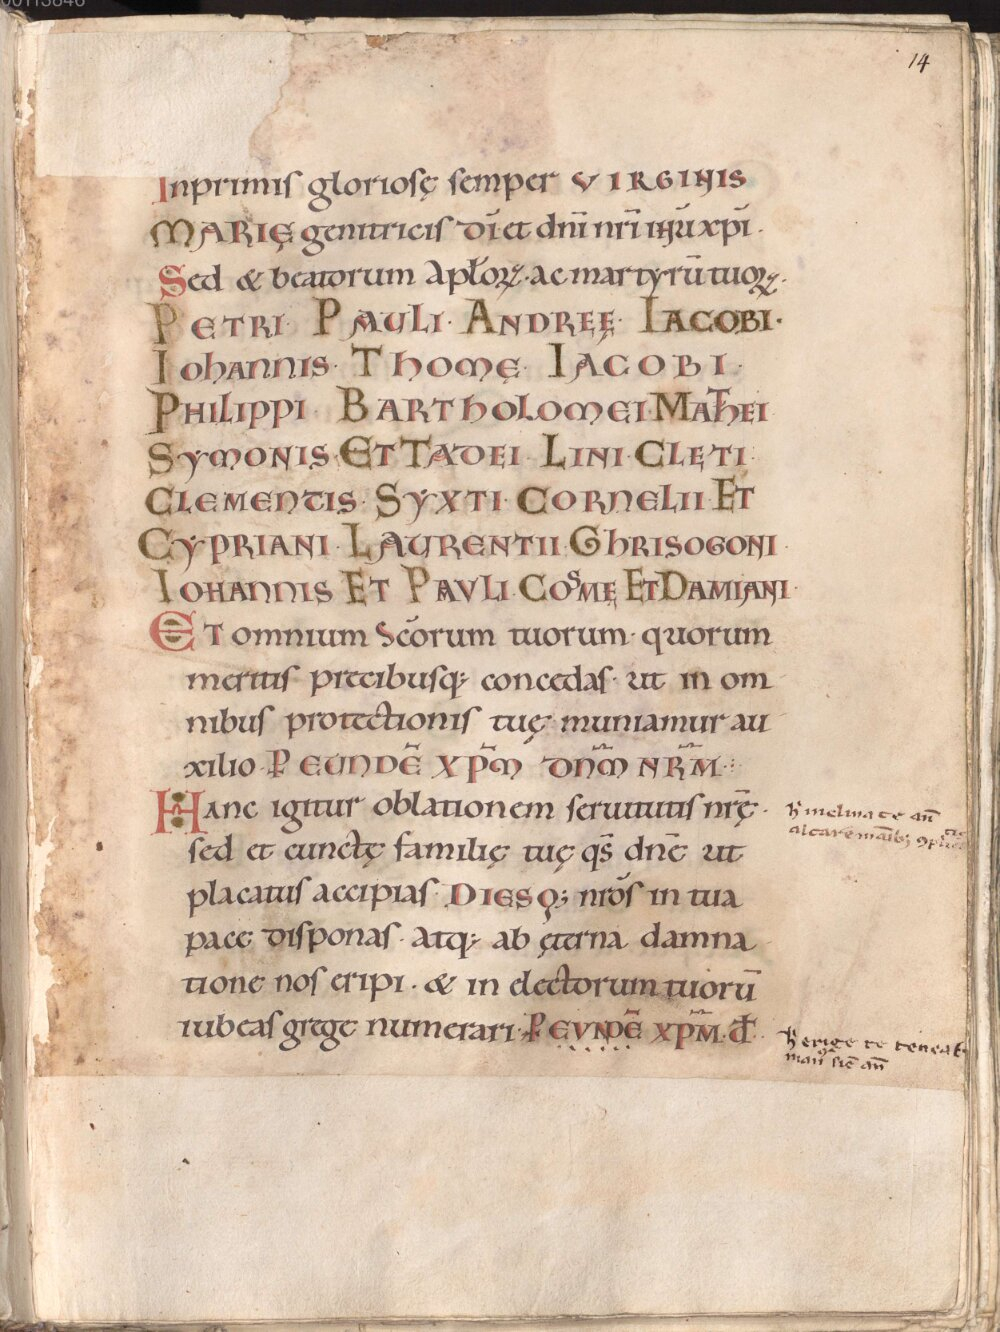 14
Inprimis gloriosę semper VIRGINIS
MARIĘ genitricis dī et dnī nrī ihū xpī.
Sed & beatorum Aplōꝝ · ac martyrū tuoꝝ·
PETRI PAULI · ANDREĘ · IACOBI·
IOHANNIS · THOMĘ IACOBI ·
PHILIPPI BARTHOLOMEI · MATHEI
SYMONIS · ET TADEI LINI · CLĘTI
CLEMENTIS · SYXTI · CORNELII ET
CYPRIANI · LAURENTII · GHRISOGONI ·
IOHANNIS ET PAVLI · COSMĘ ET DAMIANI ·
ET omnium Scōrum tuorum · quorum
meritis precibusq; concedas · ut in om
nibus protectionis tuę muniamur au
xilio · P̲ EUNDĒ XP̄M DN̄M NR̄M :
HANC igitur oblationem seruitutis nrę̄ ·
sed et cunctę familię tuę qs̄ dnē ut
placatus accipias · DIESQ; nrōs in tua
pace disponas · atq; ab ęterna damna
tione nos eripi · & in electorum tuorū
iubeas grege numerari · P̲ EVNDĒ XP̄M · đ
inclina te an̄
altare manib;
erige te
man sic an̄